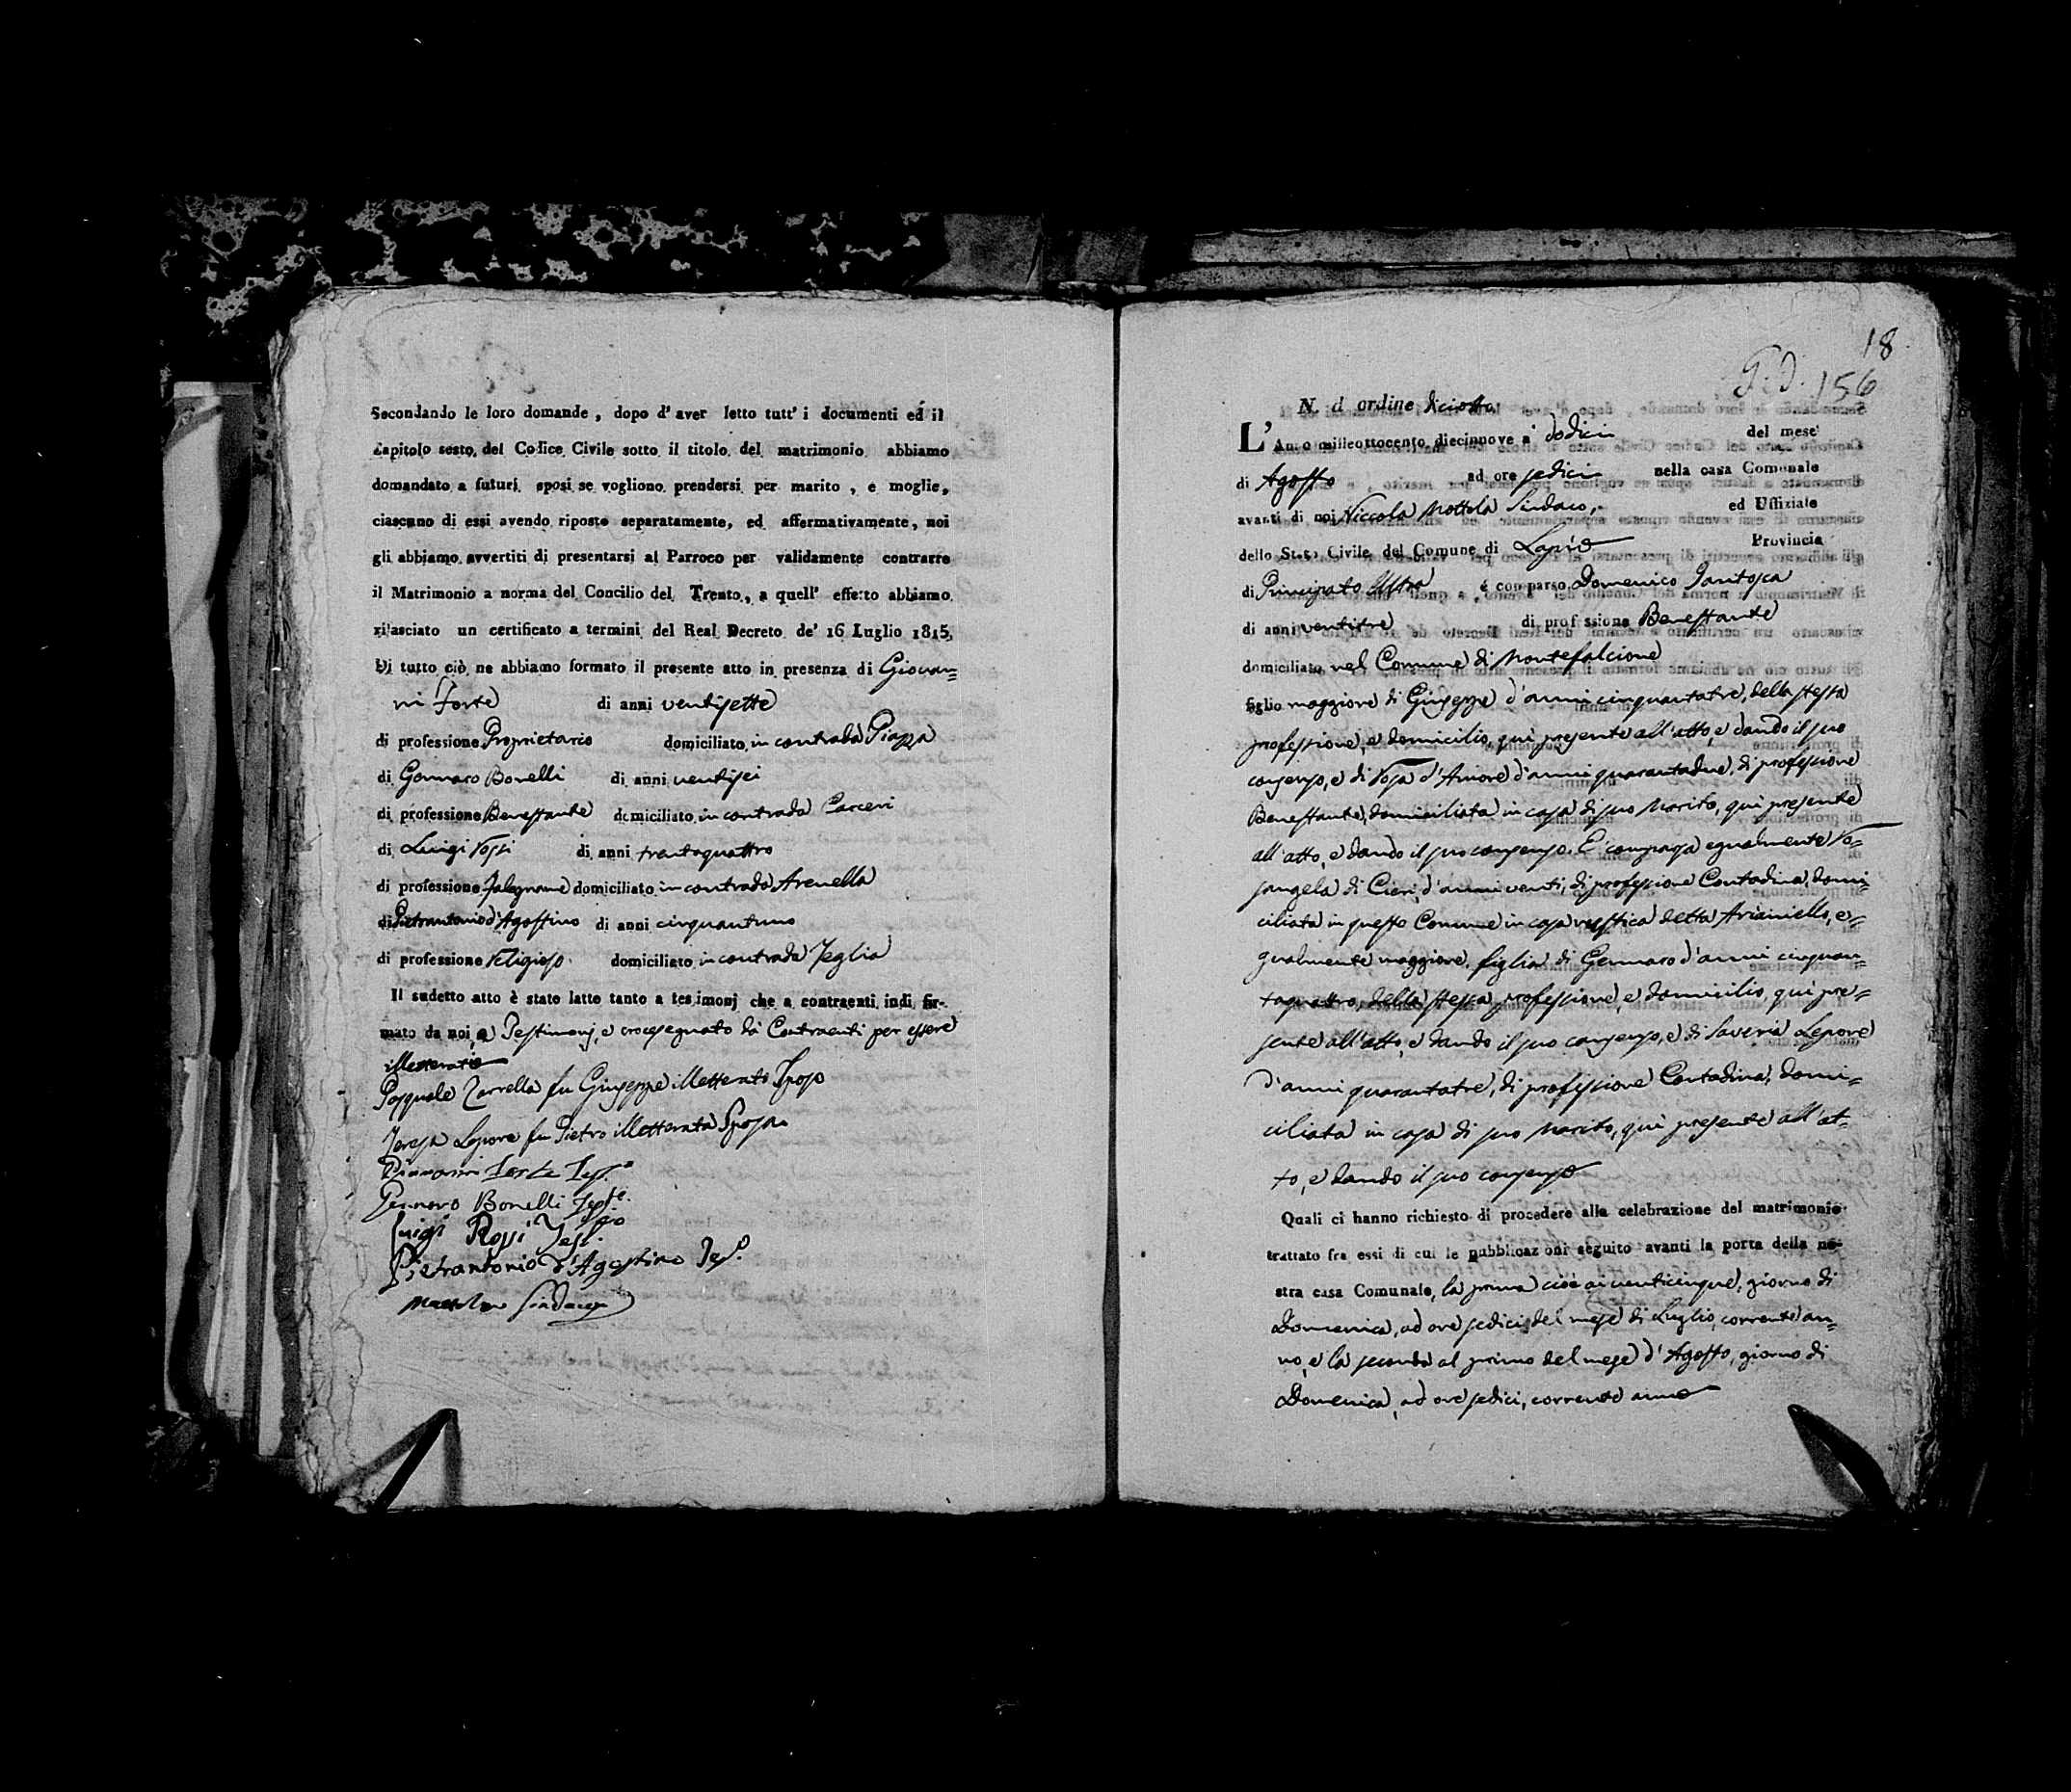 Secondando le loro domande, dopo d' aver letto tutt' i documenti ed il
Capitolo sesto del Codice Civile sotto il titolo del matrimonio abbiamo
domandato a futuri sposi se vogliono prendersi per marito, e moglie,
ciascuno di essi avendo riposto separatamente, ed affermativamente, noi
gli abbiamo avvertiti di presentarsi al Parroco per validamente contrarre
il Matrimonio a norma del Concilio del Trento, a quell' effetto abbiamo
rilasciato un certificato a termini del Real Decreto de' 16 Luglio 1815.
Di tutto ciò ne abbiamo formato il presente atto in presenza di Giovan=
ni Forte di anni ventisette
di professione Proprietario domiciliato in contrada Piazza
di Gennaro Bonelli di anni ventisei
di professione Benestante domiciliato in contrada Carceri
di Luigi Rossi di anni trentaquattro
di professione Falegname domiciliato in contrada Arenella
di Pietrantonio d'Agostino di anni cinquantuno
di professione Religioso domiciliato in contrada Teglia
Il sudetto atto è stato latto tanto a tesimonj che a contraenti indi fir-
mato da noi, e Testimonj, e crocesegnato da Contraenti per essere
illetterati
Pasquale Zarrella fu Giuseppe illetterato Sposo
Teresa Lepore fu Pietro illetterata Sposa
Giovanni Forte Tes.º
Gennaro Bonelli Teste.
Luigi Rossi Test.
Pietrantonio d'Agostino Tes.º
Mottola Sindaco
18
156
N. d ordine diciotto
L' Anno milleottocento diecinnove a' dodici del mese
di Agosto ad ore sedici nella casa Comunale
avanti di noi Niccola Mottola Sindaco, ed Uffiziale
dello Stato Civile del Comune di Lapio Provincia
di Principato Ultra è comparso Domenico Santosca
di anni ventitre di professione Benestante
domiciliato nel Comune di Montefalcione
figlio maggiore di Giuseppe d'anni cinquantatre, della stessa
professione, e domicilio, quì presente all'atto, e dando il suo
consenso, e di Rosa d'Amore d'anni quarantadue, di professione
Benestante, domiciliata in casa di suo Marito, quì presente
all'atto, e dando il suo consenso. E' comparsa egualmente Ro=
sangela di Cieri, d'anni venti, di professione Contadina, domi=
ciliata in questo Comune in casa rustica detta Arianiello, e=
gualmente maggiore, figlia di Gennaro d'anni cinquan=
taquattro, della stessa professione, e domicilio, quì pre=
sente all'atto, e dando il suo consenso, e di Saveria Lepore
d'anni quarantatre, di professione Contadina, domi=
ciliata in casa di suo Marito, quì presente all'at=
to, e dando il suo consenso
Quali ci hanno richiesto di procedere alla celebrazione del matrimonio
trattato fra essi di cui le pubblicaz oni seguito avanti la porta della no-
stra casa Comunale, la prima cioè ai venticinque, giorno di
Domenica, ad ore sedici del mese di Luglio, corrente an=
no, e la seconda al primo del mese d'Agosto, giorno di
Domenica, ad ore sedici, corrente anno